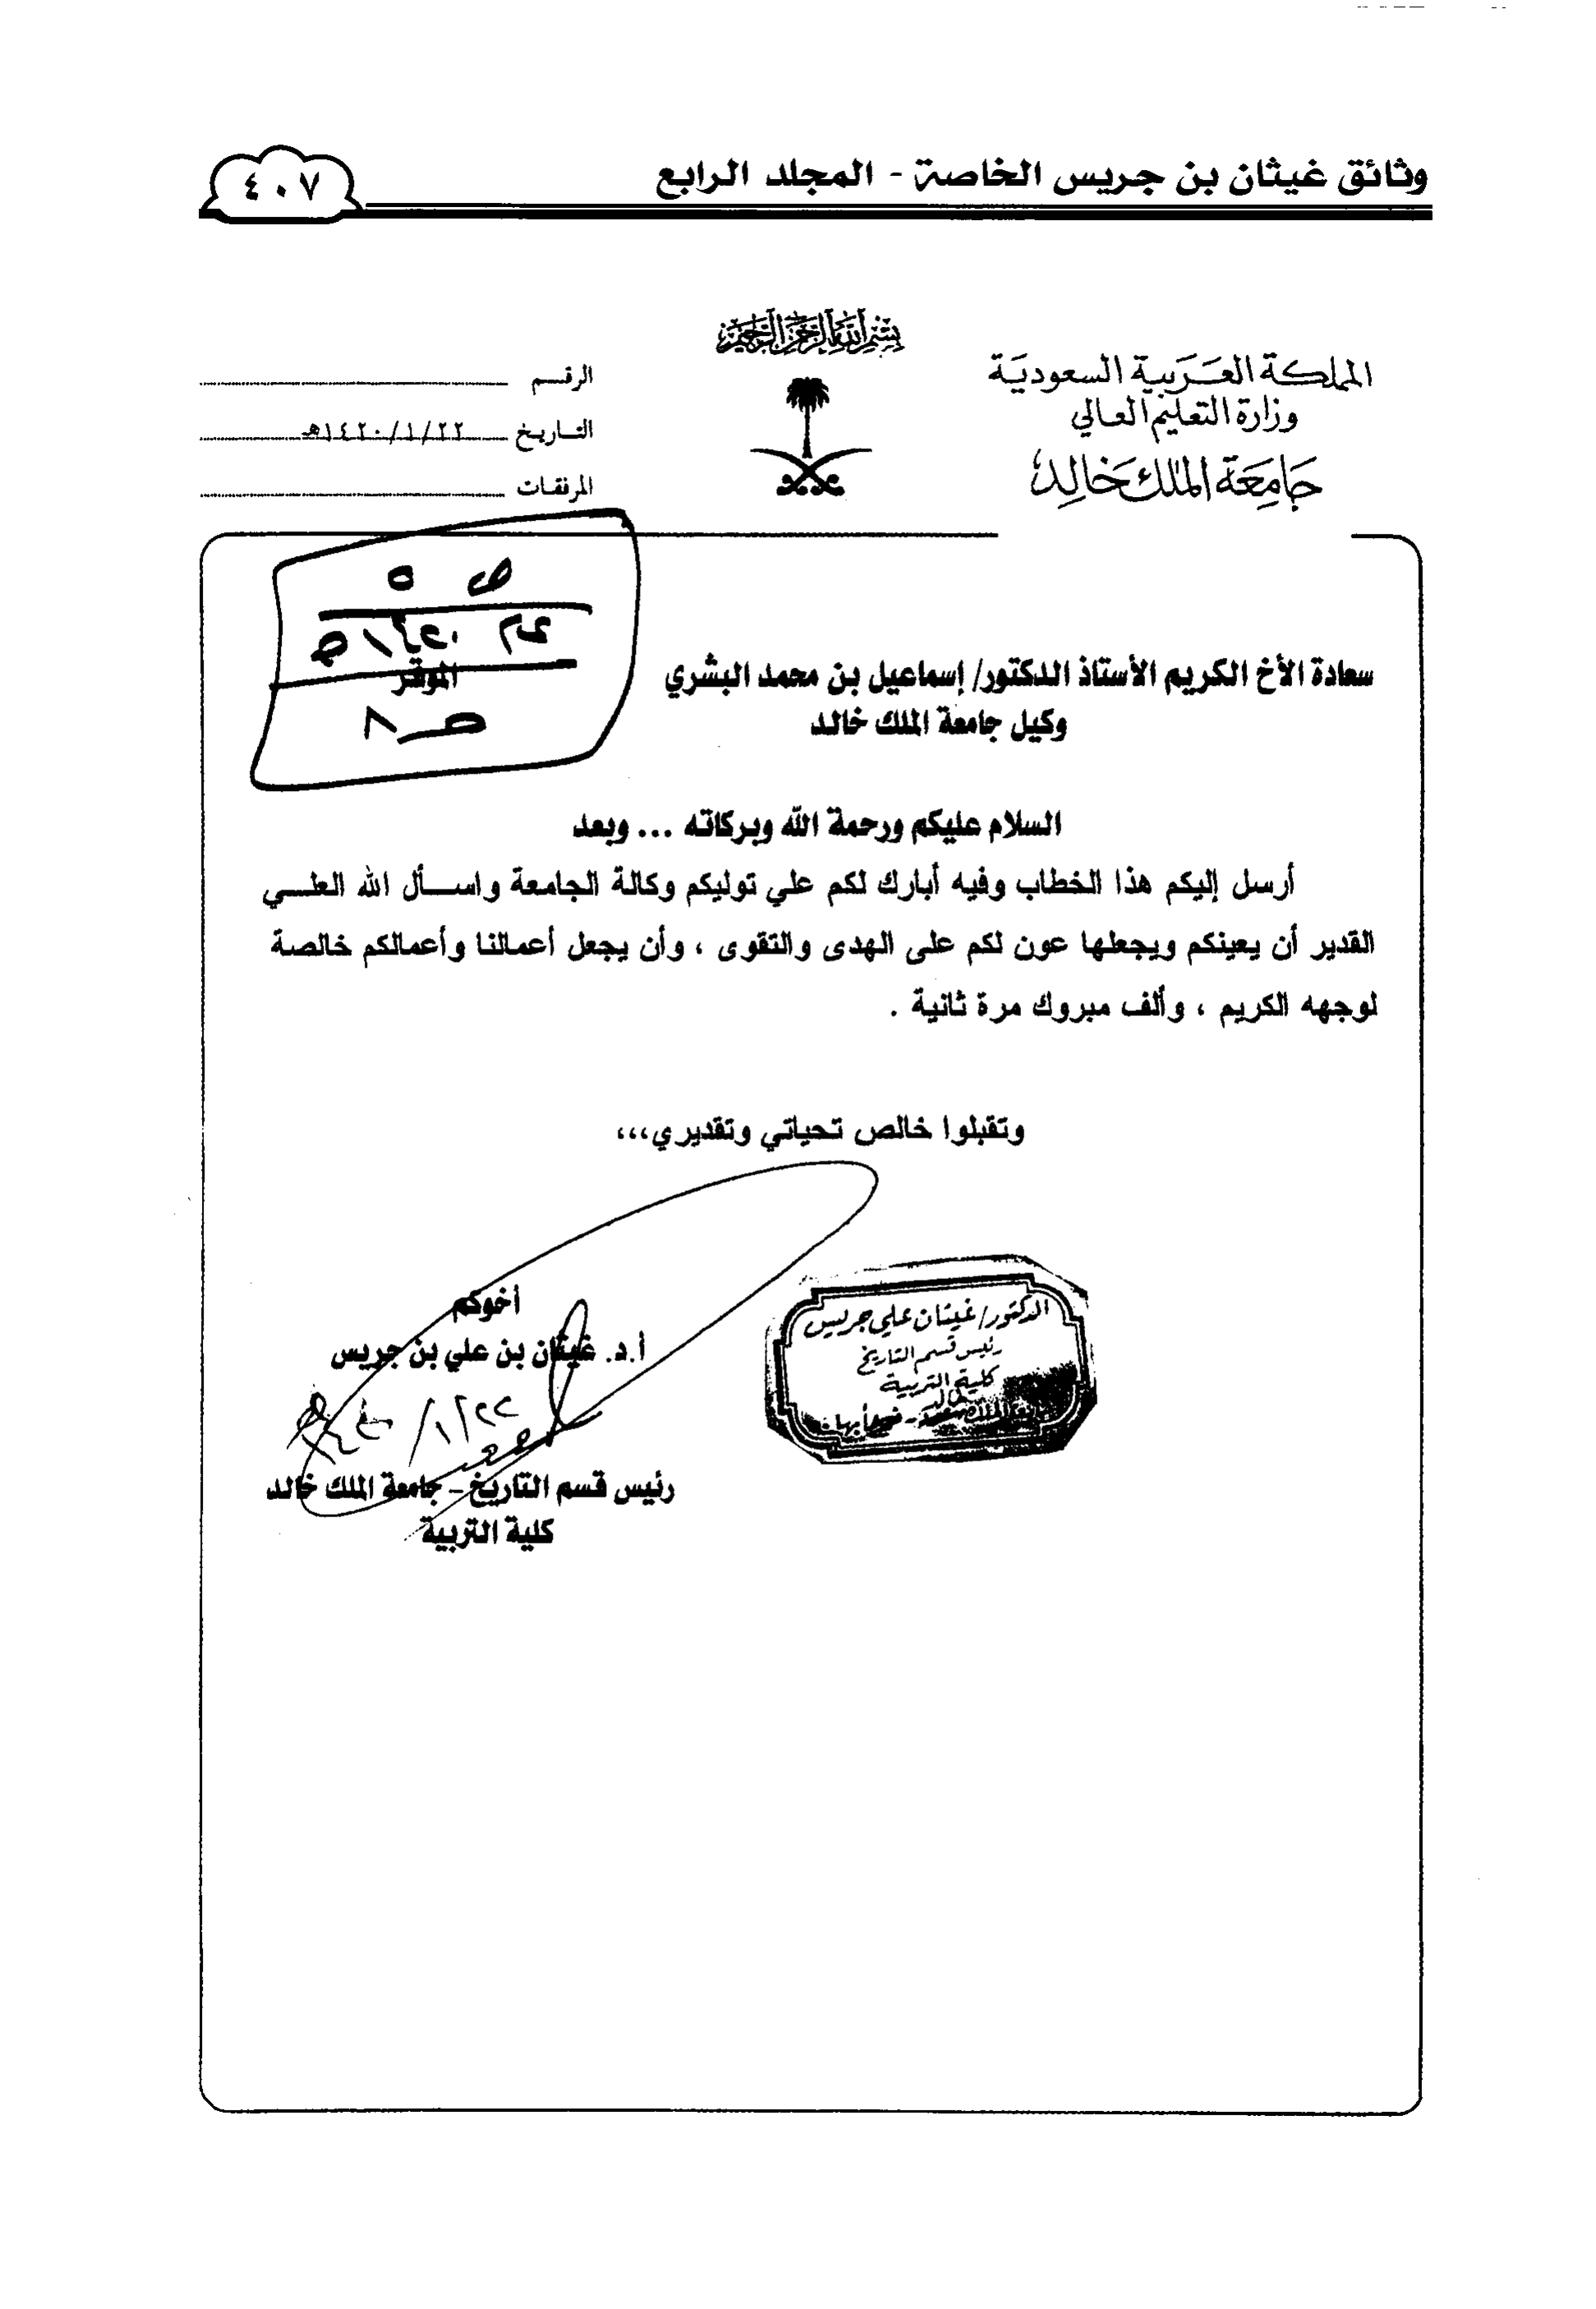 وثائق غيثان بن جريس الخاصة - المجلد الرابع
٤٠٧
بسم الله الرحمن الرحيم
المملكة العربية السعودية
وزارة التعليم العالي
جامعة الملك خالد
الرقم
التاريخ ١٤٢٠/١/٢٢هـ
المرفقات
سعادة الأخ الكريم الأستاذ الدكتور/ إسماعيل بن محمد البشري الموقر
وكيل جامعة الملك خالد
السلام عليكم ورحمة الله وبركاته ... وبعد
أرسل إليكم هذا الخطاب وفيه أبارك لكم علي توليكم وكالة الجامعة واســأل الله العلــي
القدير أن يعينكم ويجعلها عون لكم على الهدى والتقوى ، وأن يجعل أعمالنا وأعمالكم خالصة
لوجهه الكريم ، وألف مبروك مرة ثانية .
وتقبلوا خالص تحياتي وتقديري،،،
أخوكم
أ.د. غيثان بن علي بن جريس
رئيس قسم التاريخ - جامعة الملك خالد
كلية التربية
الدكتور/ غيثان علي جريس
رئيس قسم التاريخ
كلية التربية